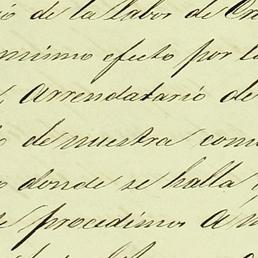 ó de la labor de Cre
mismo efecto por la
Arrendatario de
de nuestra com
donde se halla
procedimos á m